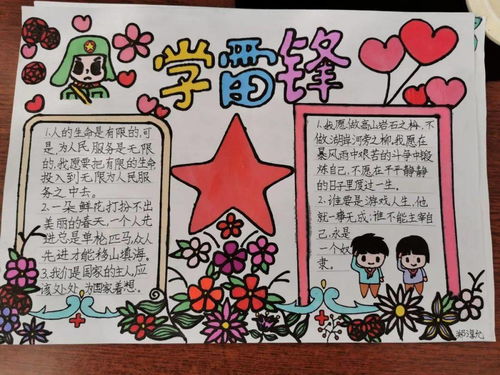 学雷锋
1.人的生命是有限的,可
是,为人民服务是无限
的,我愿要把有限的生命
投入到无限为人民服
务之中去。
2.一朵鲜花打扮不出
美丽的春天,一个人先
进总是单枪匹马,众人
先进才能移山填海。
3.我们是国家的主人,应
该处处为国家着想。
1.我愿做高山岩石之松,不
做湖岸河旁之柳,我愿在
暴风雨中艰苦的斗争中锻
炼自己,不愿在平平静静
的日子里度过一生。
2.谁要是游戏人生,他
就一事无成;谁不能主宰自
己,永是
一个奴
隶。